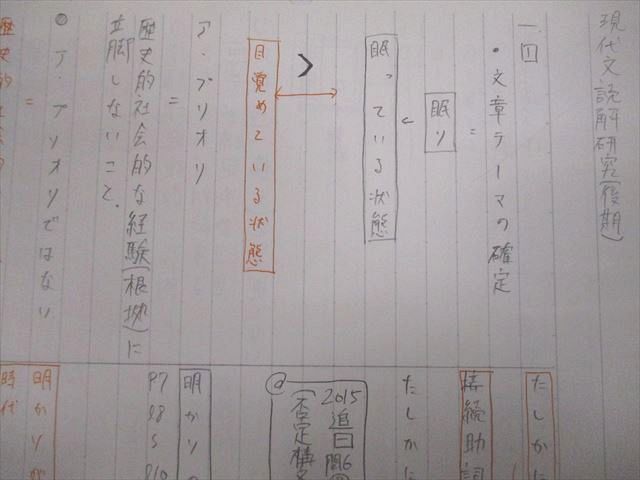 現代文読解研究(後期)
一 1
・文章テーマの確定
=
眠り
←
眠っている状態
目覚めている状態
ア・プリオリ
=
歴史的社会的な経験(根拠)に
立脚しないこと。
ア・プリオリではない
=
歴史的社会的
たしかに
接続助詞
たしかに
2015追 1 問6
(否定構
@
明かりの
P7
S8
S
P10
明かりが
時代